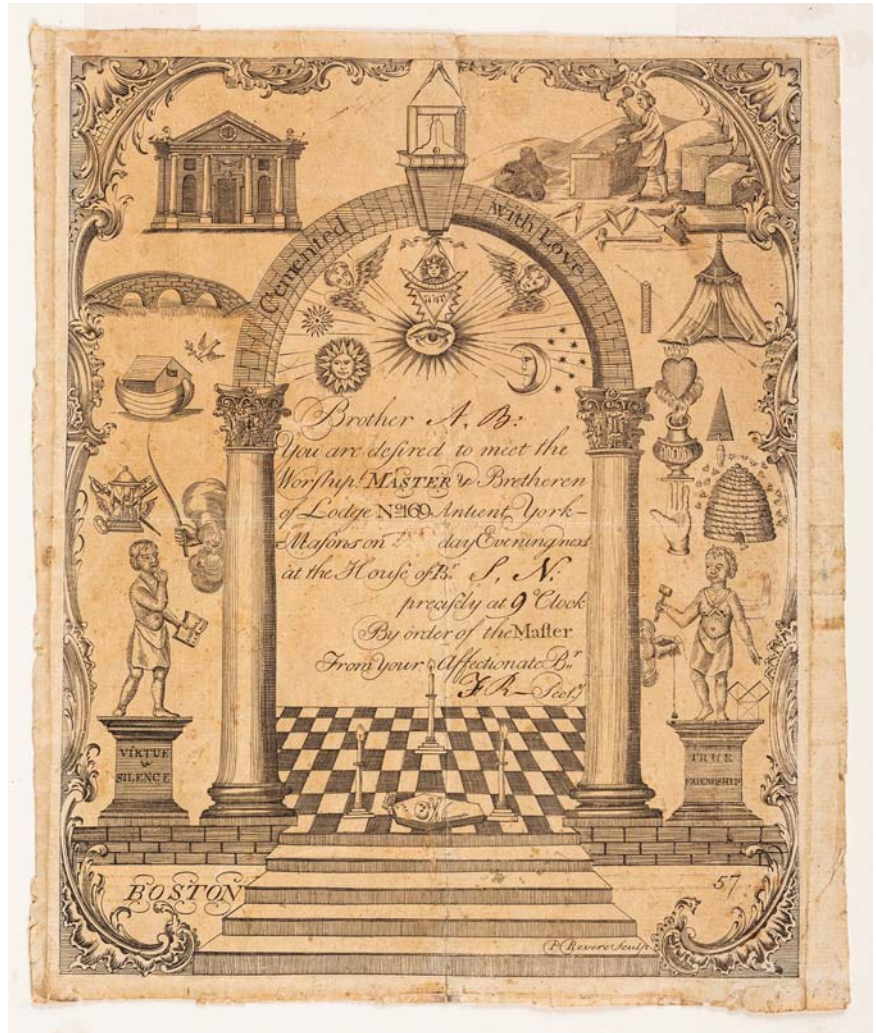 Cemented with Love
Brother A, B:
You are desired to meet the
Worship.l MASTER & Bretheren
of Lodge No 169 Antient York-
Masons on day Evening next
at the House of Br. S, N:
precisely at 9 o'Clock
By order of the Master
From Your Affectionate Br
F R- Secty
VIRTUE
&
SILENCE
TRUE
FRIENDSHIP
BOSTON
57
P. Revere Sculp